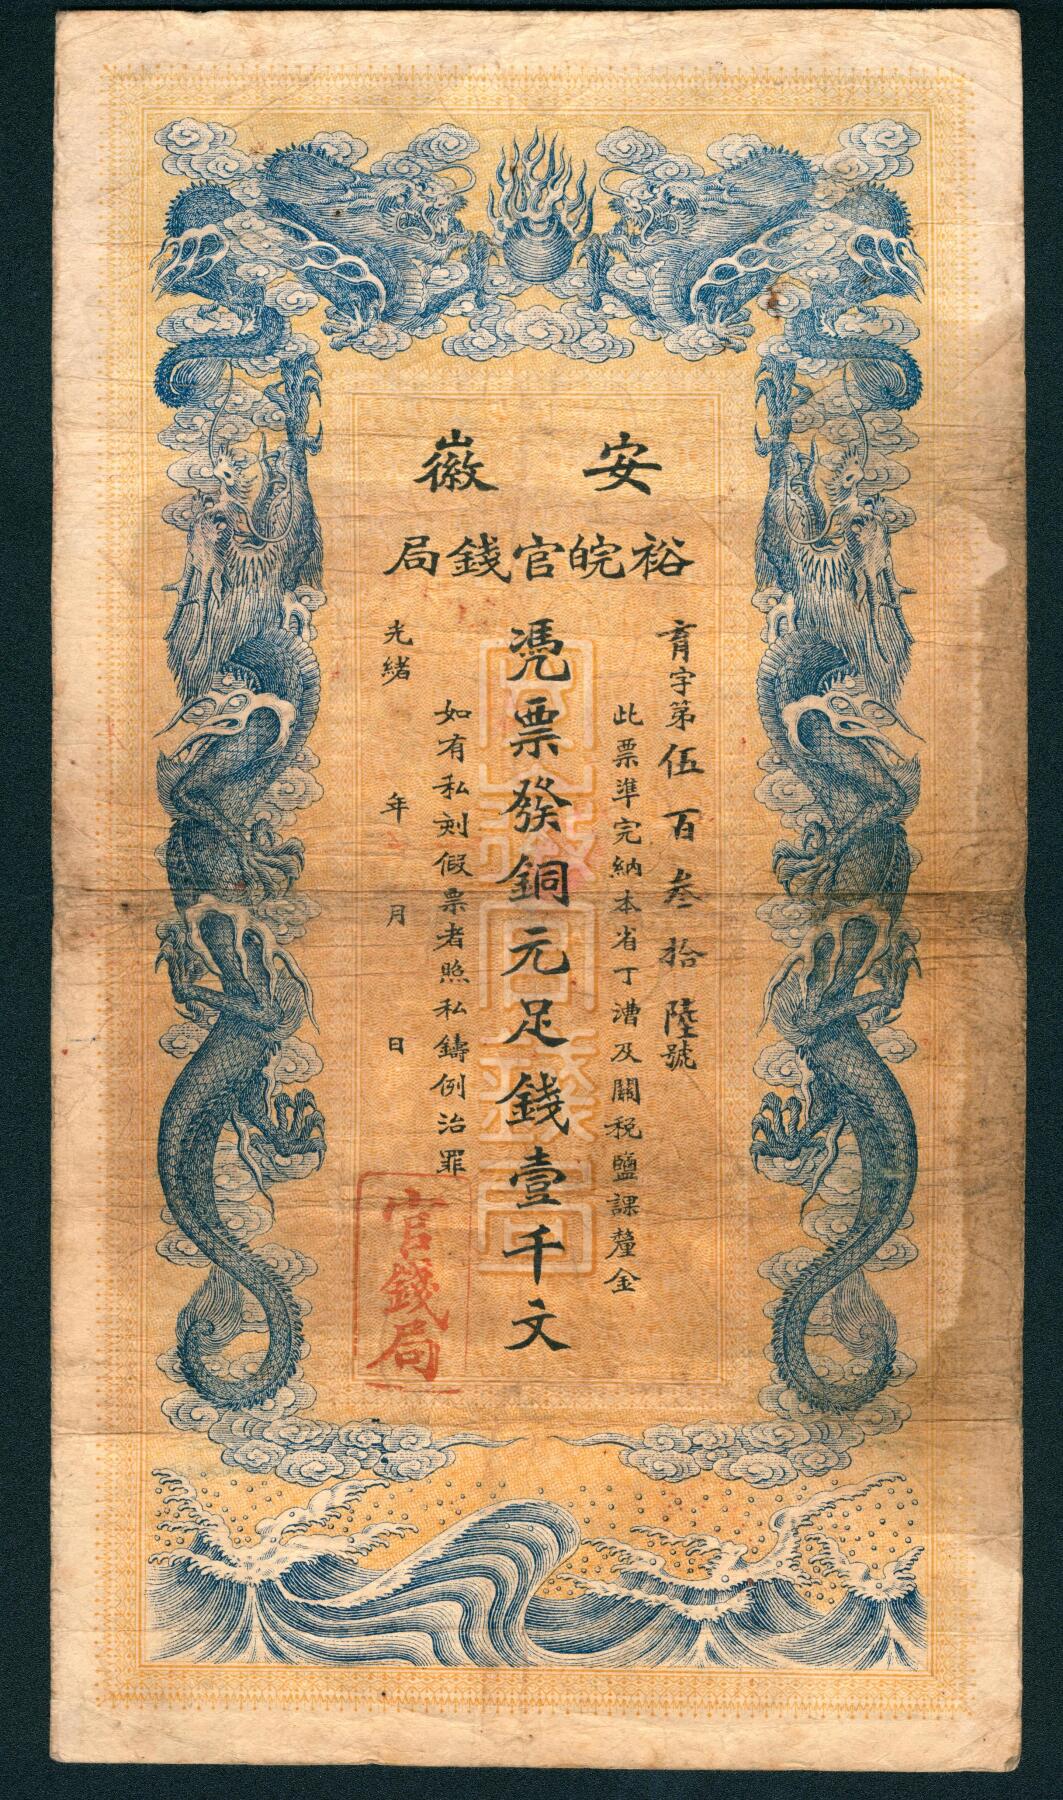 安徽
裕皖官錢局
育字第伍百叁拾陸號
此票準完納本省丁漕及關稅鹽課釐金
憑票發銅元足錢壹千文
如有私刻假票者照私鑄例治罪
光緒 年 月 日
官錢局